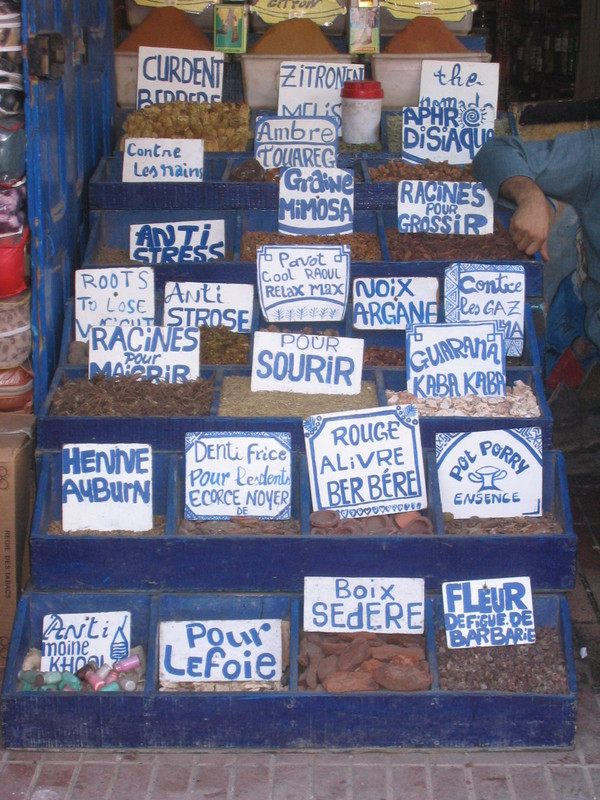 CURDENT
BERBERE
ZITRONEN
MELIS
the
nomade
APHR
DISIAQUE
Contre
Les nains
Ambre
TOUAREG
Graine
MiMOSA
RACINES
POUR
GROSSIR
ANTI
STRESS
Pavot
Cool RAOUL
RELAX MAX
ROOTS
TO LOSE
Anti
STROSE
NOIX
ARGANE
Contre
les GAZ
RACINES
pour
MAIGRIR
POUR
SOURIR
GUARANA
KABA KABA
HENNE
AUBURN
DENTi FRicE
Pour lesdents
ECORCE NOYER
DE
ROUGE
ALiVRE
BERBÉRE
POT PORRY
ENSENCE
Anti
moine
KHOOL
Pour
LEfoie
Boix
SEDERE
FLEUR
DE FIGUE.DE
BARBARIE